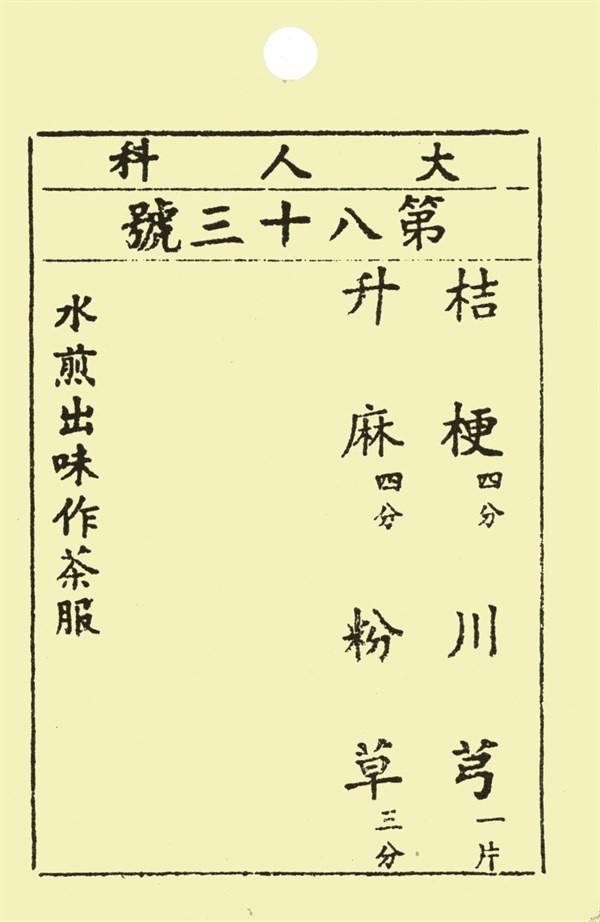 大人科
第八十三號
桔梗四分 川芎一片
升麻四分 粉草三分
水煎出味作茶服